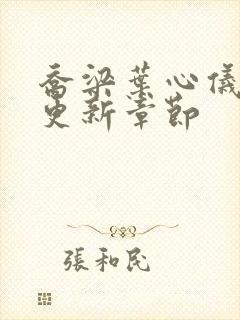 喬梁葉心儀
更新章節
張和民